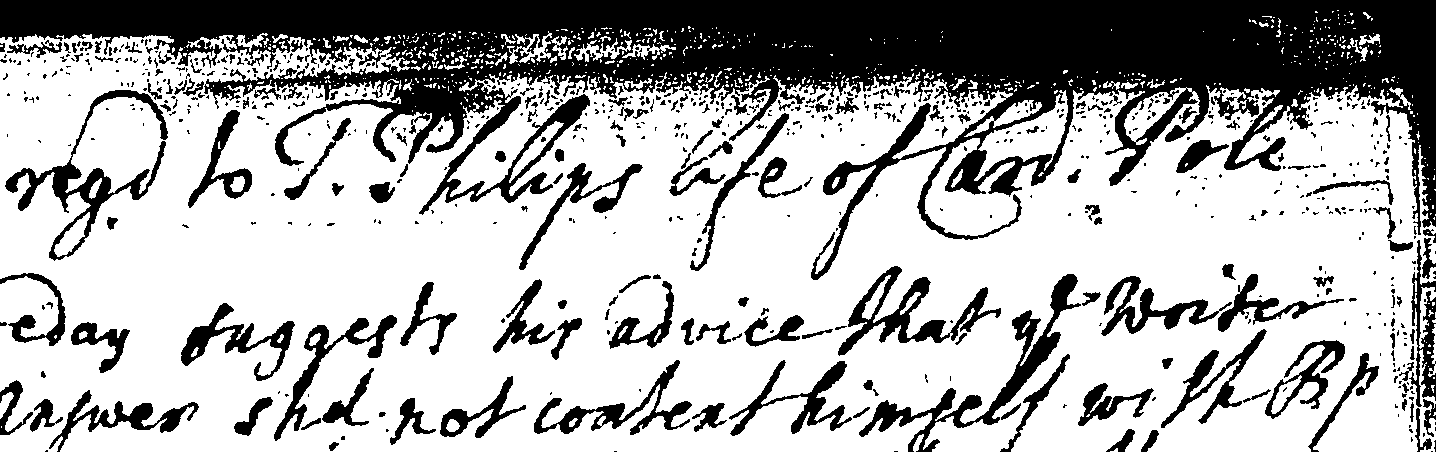 regd to T. Philips life of Card. Pole
eday suggests his advice that ye Writer
Answer shd not content himself with Bp